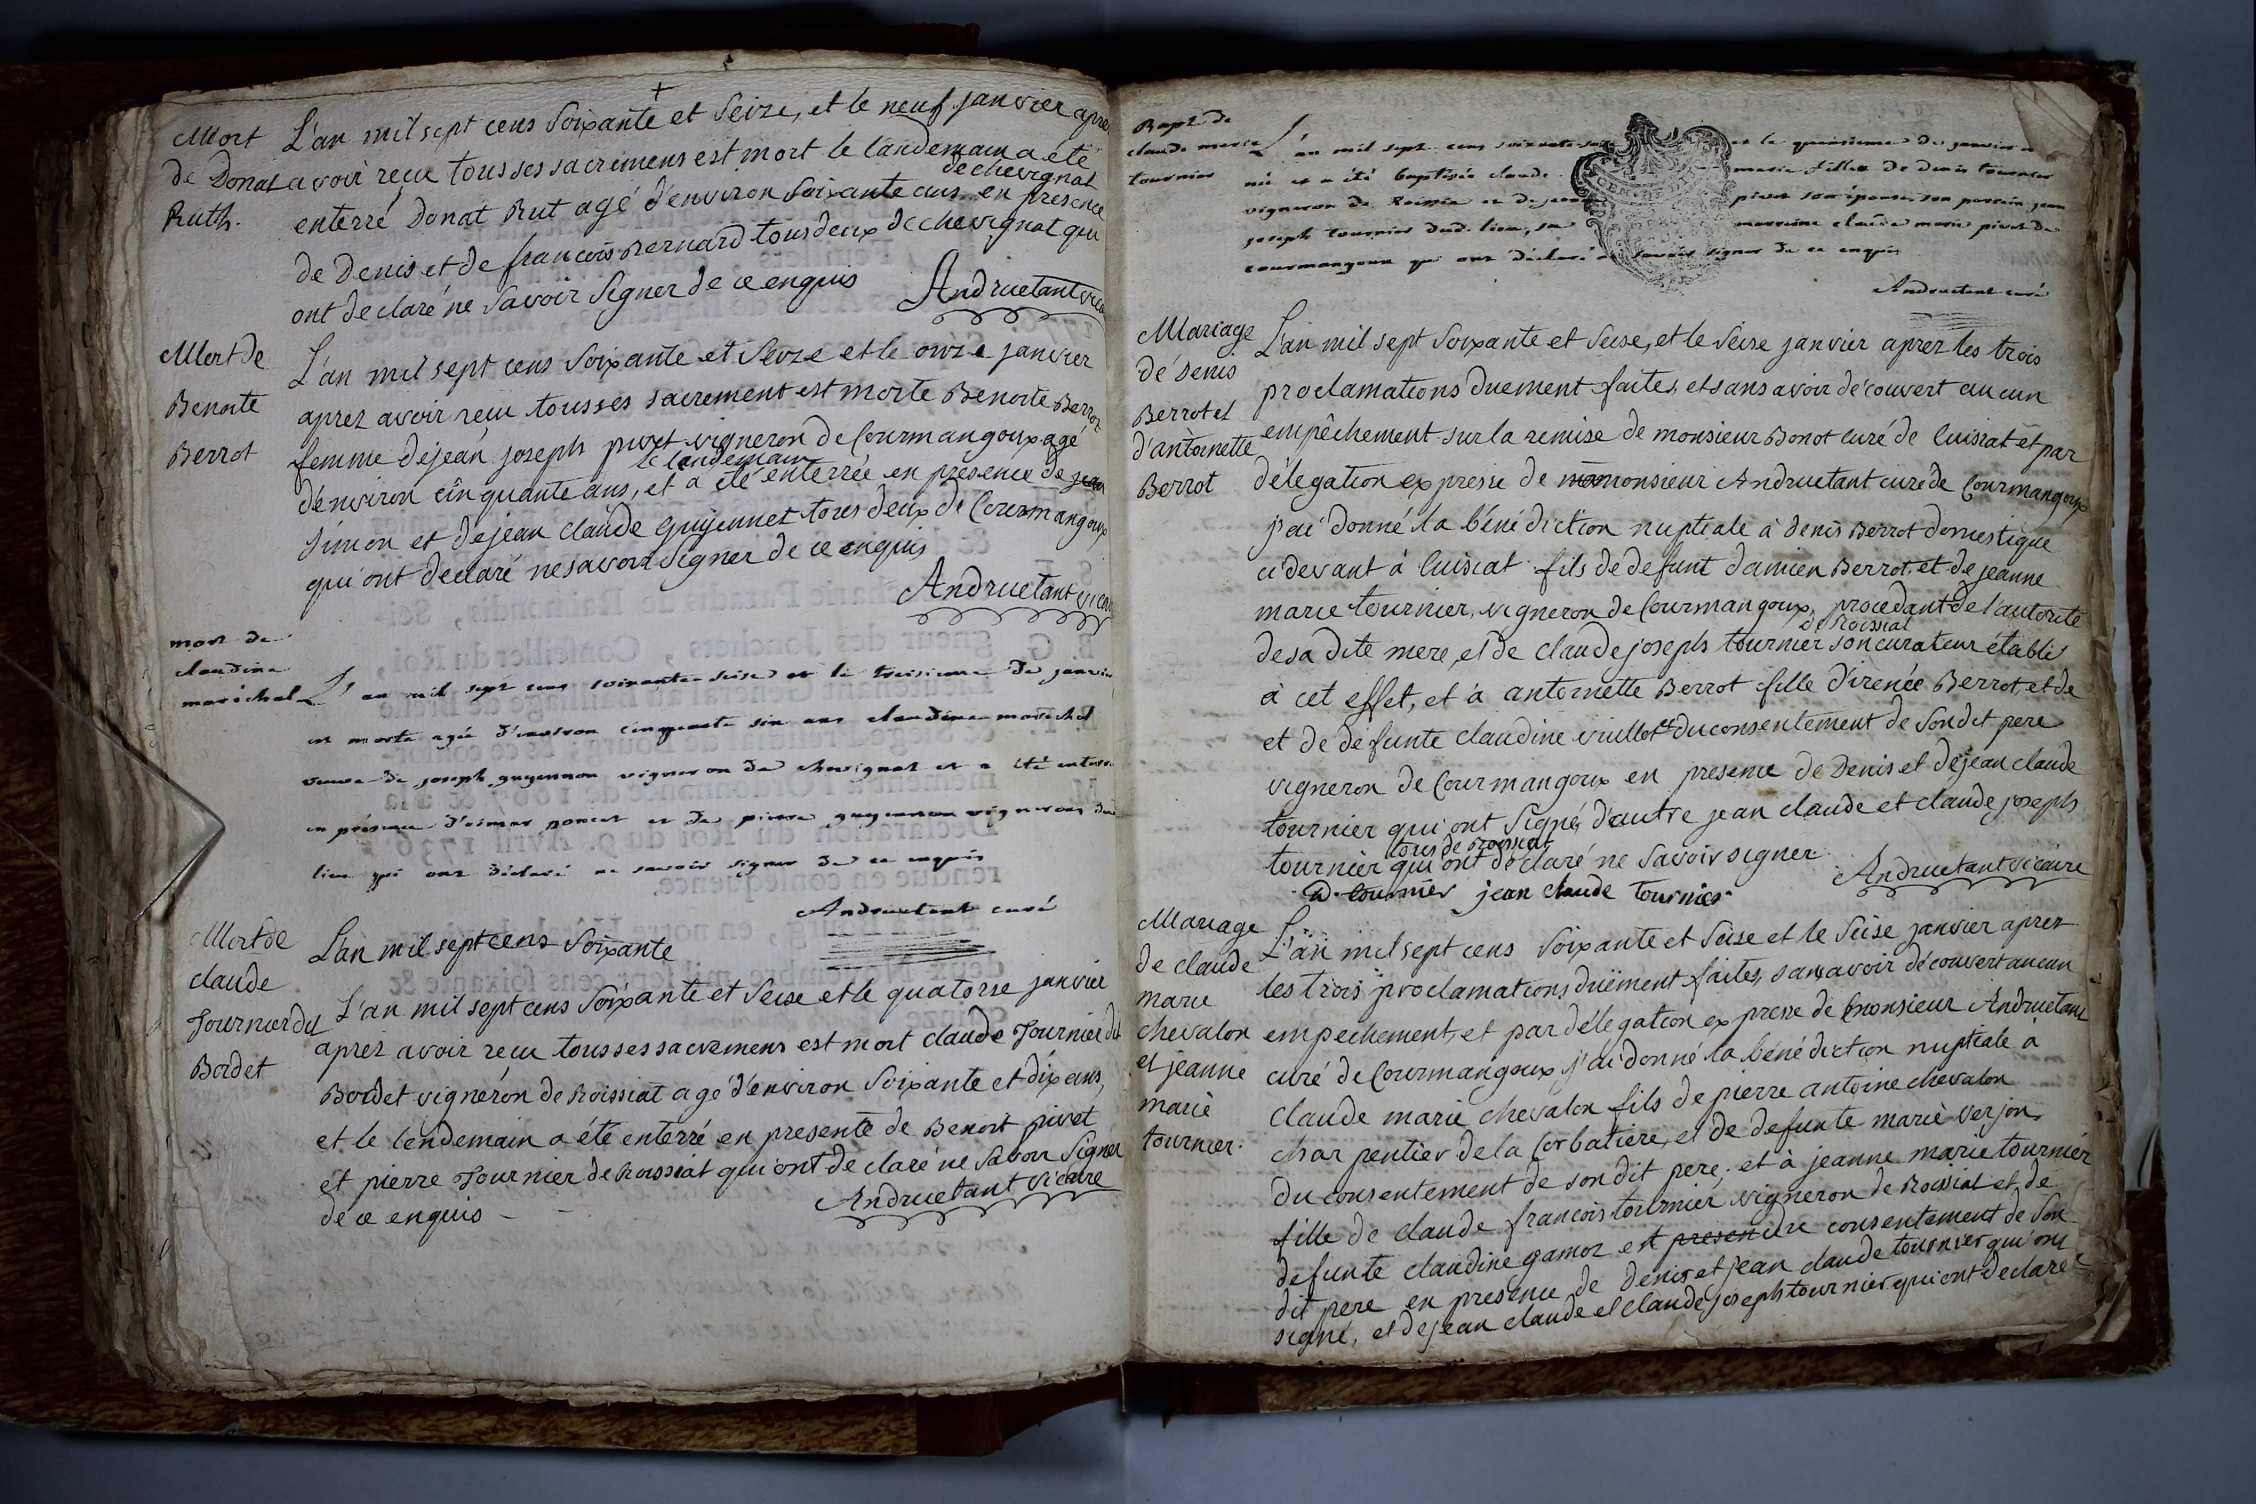 Mort
de Donat
Ruth.
L'an mil sept cens soixante et seize, et le neuf janvier apre
avoir reçu tous ses sacremens est mort le landemain a été
de chevignat
enterré Donat Rut agé d'environ soixante ans en presence
de Denis et de francois Bernard tous deux de chevignat qui
ont declaré ne savoir signer de ce enquis
Andruetant vica
Mort de
Benoite
Berrot
L'an mil sept cens soixante et seize et le onze janvier
aprez avoir reçu tous ses sacrement est morte Benoite Berrot
femme de jean joseph pivet vigneron de Courmangoux agé
le landemain
d'environ cinquante ans, et a été enterrée en présence de jean
simon et de jean claude guyennet tous deux de Courmangoux
qui ont declaré ne savoir signer de ce enquis
Andruetant vica
mort de
claudine
maréchal
L'an mil sept cens soixante seise et le troisieme de janvier
est morte agée d'environ cinquante six ans claudine maréchal
veuve de joseph guyennon vigneron de chevignat et a été enterré
en présence d'eimar poncet et de pierre guyennon vignerons dud
lieu qui ont déclaré ne savoir signer de ce enquis
Andruetant curé
Mort de
claude
Tournier du
Bordet
L'an mil sept cens soixante
L'an mil sept cens soixante et seise et le quatorse janvier
aprez avoir reçu tous ses sacremens est mort claude Tournier du
Bordet vigneron de Roissiat agé d'environ soixante et dix ans,
et le lendemain a été enterré en presente de Benoit pivet
et pierre Tournier de Roissiat qui ont declaré ne savoir signer
de ce enquis
Andruetant vicaire
Bapt de
claude marie
tournier
L'an mil sept cens soixante seise et le quinsieme de janvier a
née et a été baptisée claude marie fille de denis tournier
vigneron de Roissia et de jeanne pivet son épouse, son parrein jean
joseph tournier dud. lieu, sa marreine claude marie pivet de
courmangoux qui ont déclaré ne savoir signer de ce enquis
Andruetant curé
Mariage
de denis
Berrot et
d'antoinette
Berrot
L'an mil sept soixante et seise, et le seise janvier aprez les trois
proclamations duement faites, et sans avoir découvert aucun
empêchement sur la remise de monsieur Bonot curé de Cuisiat et par
délegation expresse de mo monsieur Andruetant curé de Courmangoux
j'ai donné la bénédiction nuptiale à denis Berrot domestique
ci devant à Cuisiat fils de defunt damien Berrot, et de jeanne
marie tournier, vigneron de Courmangoux, procedant de l'autorité
de Roissiat
de sa dite mere, et de claude joseph tournier son curateur établi
à cet effet, et à antoinette Berrot fille d'irenée Berrot, et de
et de defunte claudine vuillot et du consentement de son dit pere
vigneron de Courmangoux en presence de Denis et de jean claude
tournier qui ont signé, d'autre jean claude et claude joseph
tous de Roissiat
tournier qui ont declaré ne savoir signer
D. tournier jean claude tournier
Andruetant vicaire
Mariage
de claude
marie
chevalon
et jeanne
marie
tournier.
L'an mil sept cens soixante et seise et le seise janvier aprez
les trois proclamations duëment faites, sans avoir découvert aucun
empechement, et par délegation expresse de monsieur Andruetant
curé de Courmangoux, j'ai donné la bénédiction nuptiale à
claude marie chevalon fils de pierre antoine chevalon
charpentier de la Corbatiere, et de defunte marie verjon
du consentement de son dit pere; et à jeanne marie tournier
fille de claude francois tournier vigneron de Roissiat et de
defunte claudine gamoz et presen du consentement de son
dit pere en presence de denis et jean claude tournier qui ont
signé, et de jean claude et claude joseph tournier qui ont declaré